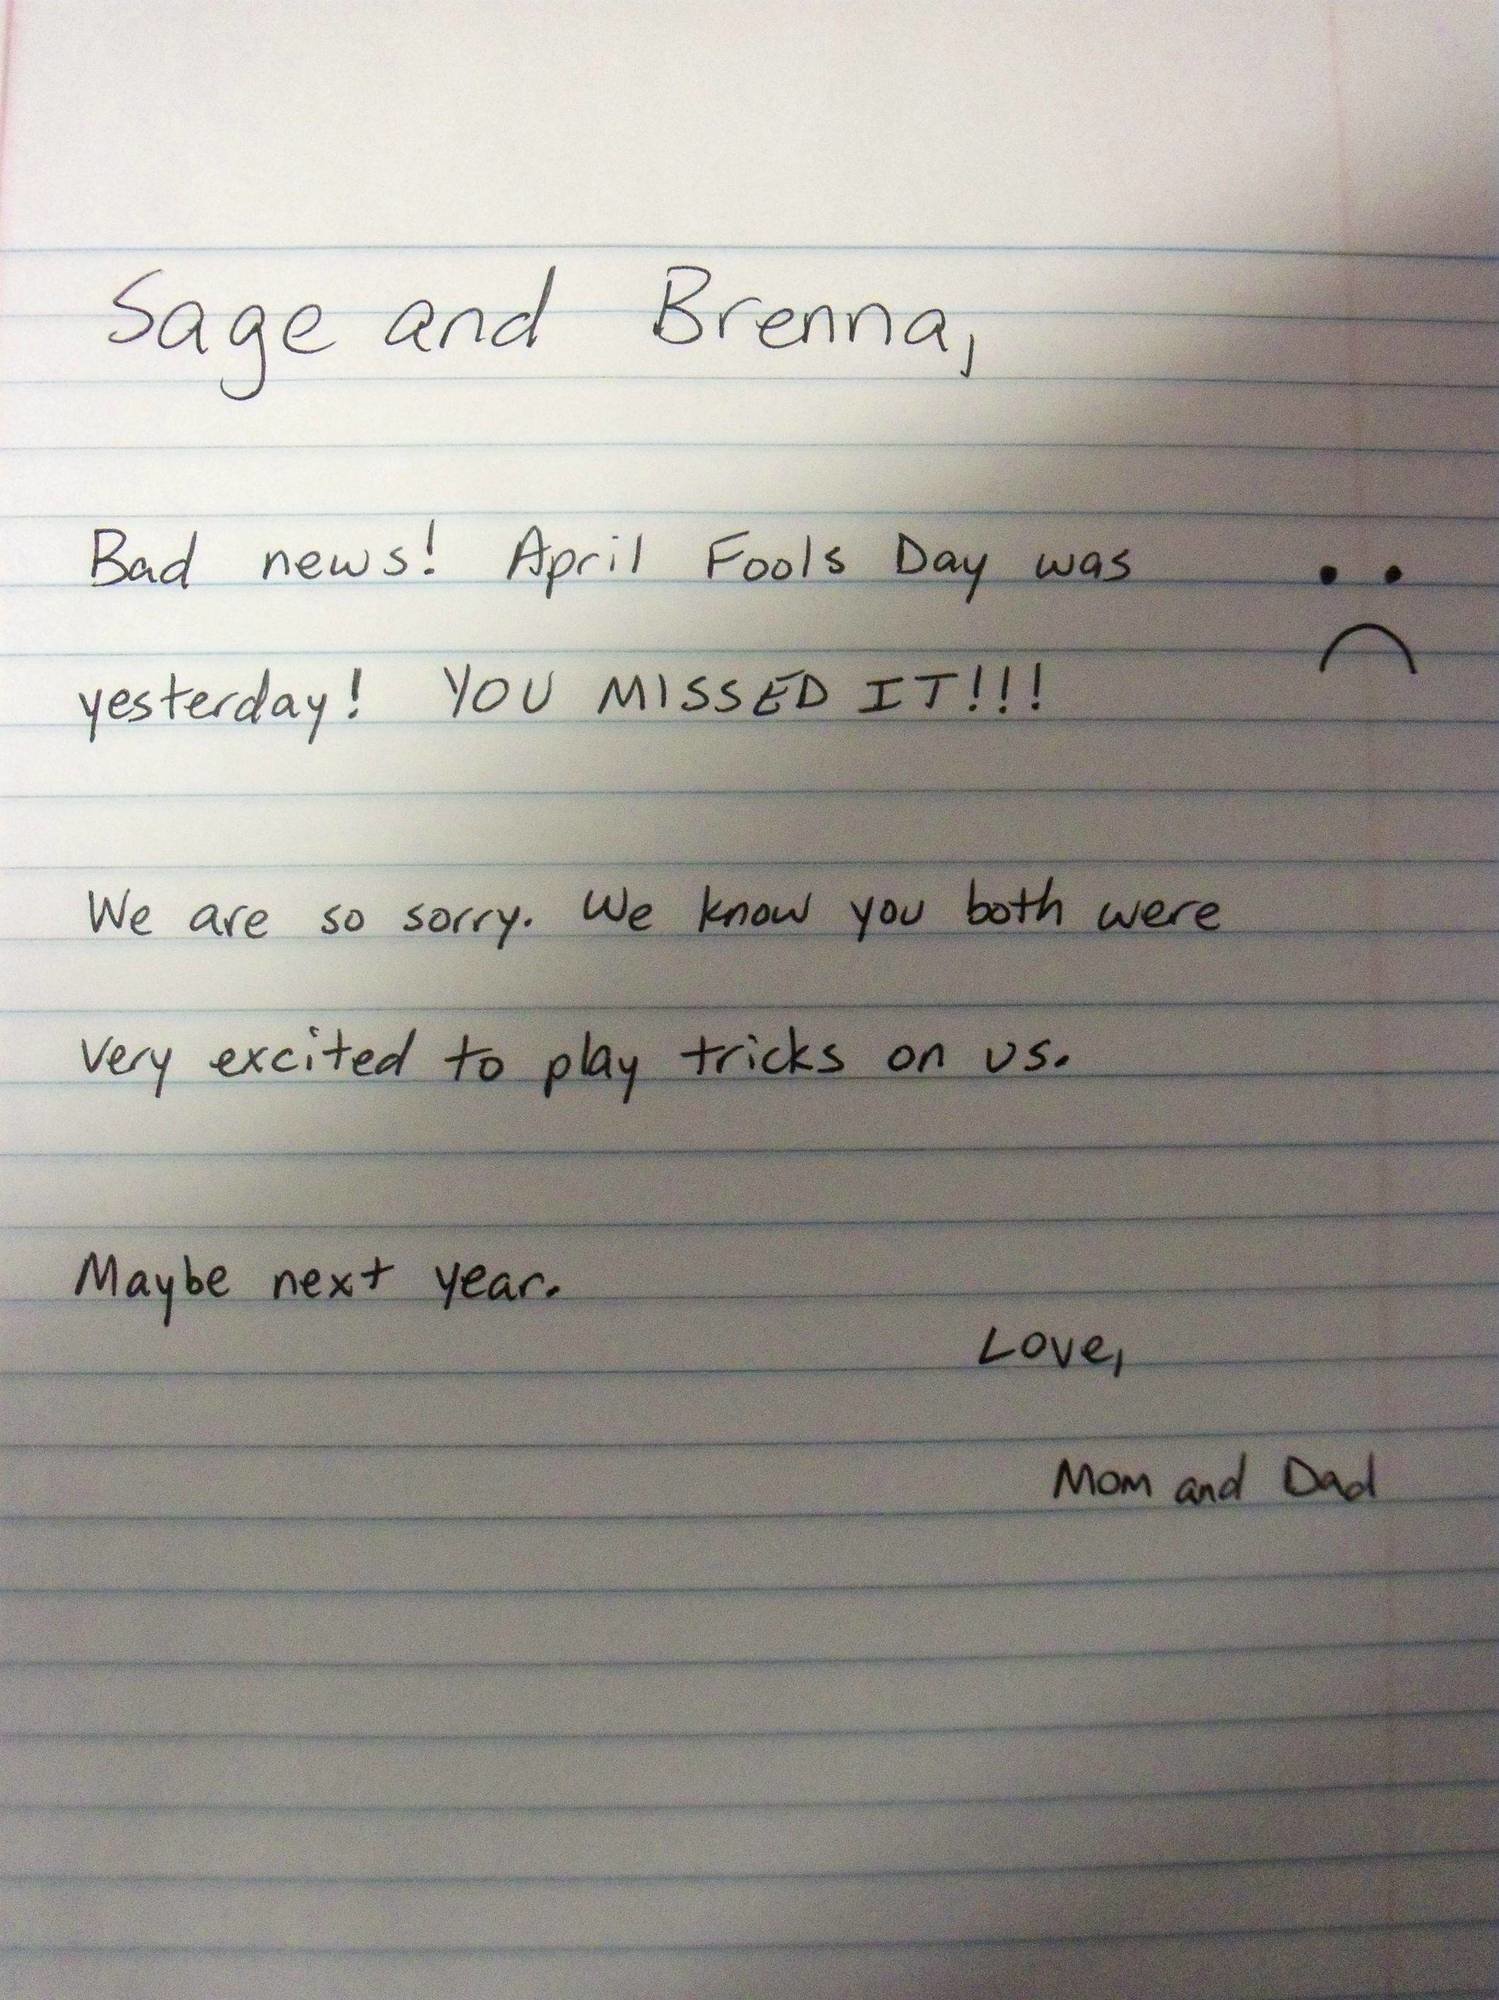 Sage and Brenna,
Bad news! April Fools Day was
yesterday! YOU MISSED IT!!!
We are so sorry. We know you both were
very excited to play tricks on us.
Maybe next year.
Love,
Mom and Dad